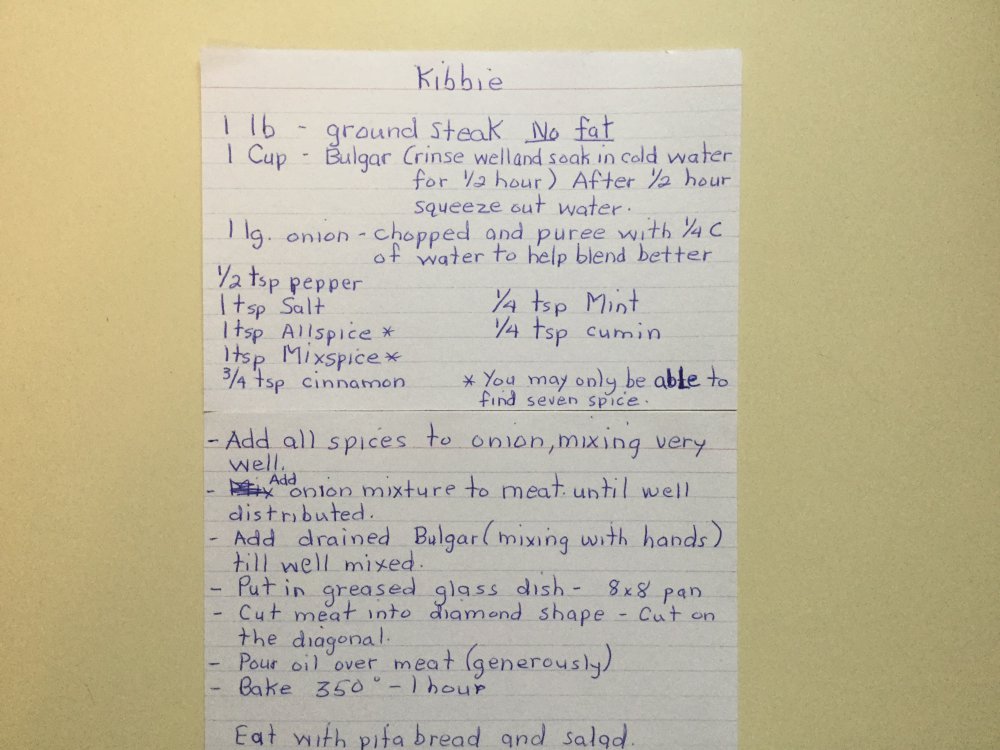 Kibbie
1 lb - ground steak No fat
1 Cup - Bulgar (rinse well and soak in cold water
for 1/2 hour) After 1/2 hour
squeeze out water.
1 lg. onion - chopped and puree with 1/4 C
of water to help blend better
1/2 tsp pepper
1 tsp Salt
1 tsp Allspice *
1 tsp Mixspice *
3/4 tsp cinnamon
1/4 tsp Mint
1/4 tsp cumin
* You may only be able to
find seven spice.
- Add all spices to onion, mixing very
well.
- Add onion mixture to meat until well
distributed.
- Add drained Bulgar (mixing with hands)
till well mixed.
- Put in greased glass dish - 8x8 pan
- Cut meat into diamond shape - Cut on
the diagonal.
- Pour oil over meat (generously)
- Bake 350° - 1 hour
Eat with pita bread and salad.